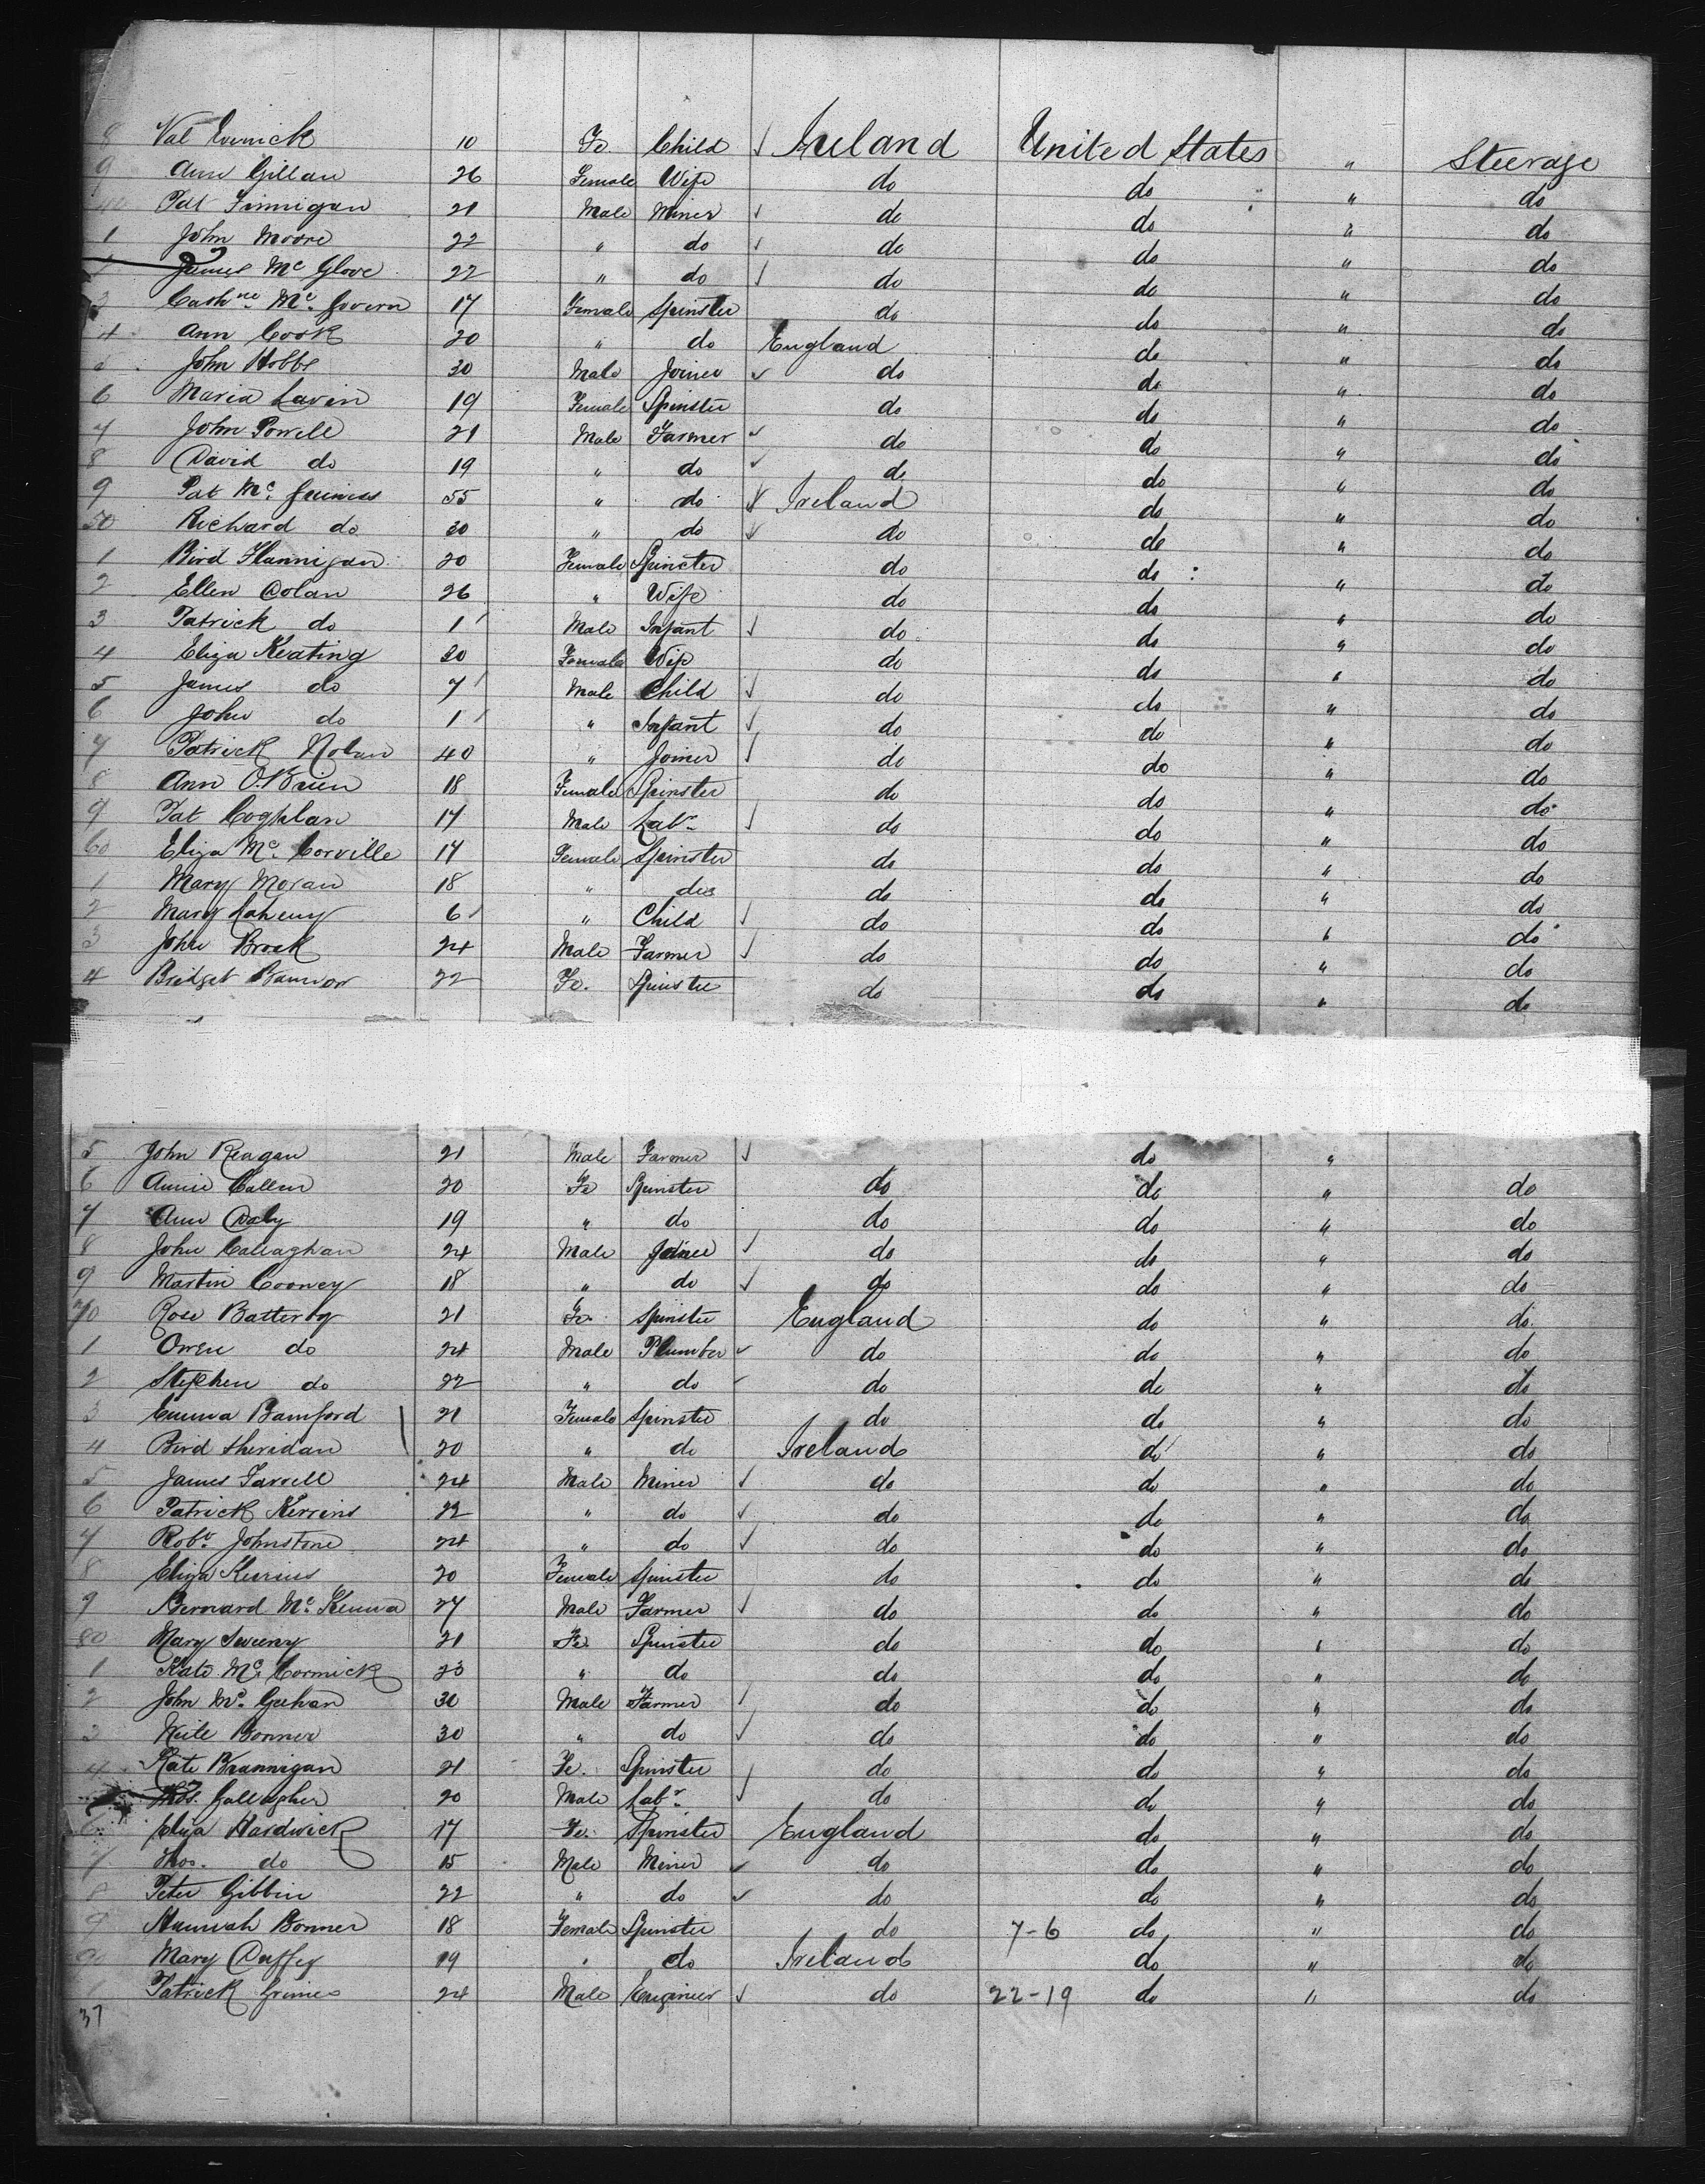 8 Val 10 Fe. Child √ Ireland United States " Steerage
9 Ann Gillan 26 Female Wife do do " do
40 Pat Finnigan 21 Male Miner √ do do " do
1 John Moore 22 " do √ do do " do
James Mc Glove 22 " do √ do do " do
3 Cathne Mc Govern 17 Female Spinster do do " do
4 Ann Cook 20 " do England do " do
5 John Hobbs 30 Male Joiner √ do do " do
6 Maria Lavin 19 Female Spinster do do " do
7 John Powell 21 Male Farmer √ do do " do
8 David do 19 " do √ do do " do
9 Pat Mc Guiness 55 " do √ Ireland do " do
50 Richard do 30 " do √ do do " do
1 Bird Flannigan 20 Female Spincter do do " do
2 Ellen Dolan 26 " Wife do do " do
3 Patrick do 1 Male Infant √ do do " do
4 Eliza Keating 30 Female Wife do do " do
5 James do 7 Male Child √ do do " do
6 John do 1 " Infant √ do do " do
7 Patrick Nolan 40 " Joiner √ do do " do
8 Ann O.Brien 18 Female Spinster do do " do
9 Pat Coghlan 17 Male Labr √ do do " do
60 Eliza Mc Corville 17 Female Spinster do do " do
1 Mary Moran 18 " do do do " do
2 Mary Laheny 6 " Child √ do do " do
3 John Brook 24 Male Farmer √ do do " do
4 Bridget 22 Fe. Spinster do do " do
5 John Reagan 21 Male Farmer √ do "
6 Annie Callen 20 Fe Spinster do do " do
7 Ann Daly 19 " do do do " do
8 John Callaghan 24 Male √ do do " do
9 Martin Cooney 18 " do √ do do " do
70 Rose Battersby 21 Fe. Spinster England do " do
1 Owen do 24 Male Plumber √ do do " do
2 Stephen do 22 " do √ do do " do
3 Emma Bamford 21 Female Spinster do do " do
4 Bird Sheridan 20 " do Ireland do " do
5 James Farrell 24 Male Miner √ do do " do
6 Patrick Kerrins 22 " do √ do do " do
7 Robt Johnstone 24 " do √ do do " do
8 Eliza Kerrins 20 Female Spinster do do " do
9 Bernard Mc Kenna 27 Male Farmer √ do do " do
80 Mary Sweeny 21 Fe. Spinster do do " do
1 Kate Mc Cormick 23 " do do do " do
2 John Mc Geehan 30 Male Farmer √ do do " do
3 Neile Bonner 30 " do √ do do " do
4 Kate Brannigan 21 Fe. Spinster do do " do
Thos. Gallagher 20 Male Labr √ do do " do
6 Eliza Hardwick 17 Fe. Spinster England do " do
7 Thos. do 15 Male Miner √ do do " do
8 Peter Gibbin 22 " do √ do do " do
9 Hannah Bonner 18 Female Spinster do 7-6 do " do
90 Mary Duffy 19 " do Ireland do " do
1 Patrick Grimes 24 Male Enginier √ do 22-19 do " do
37